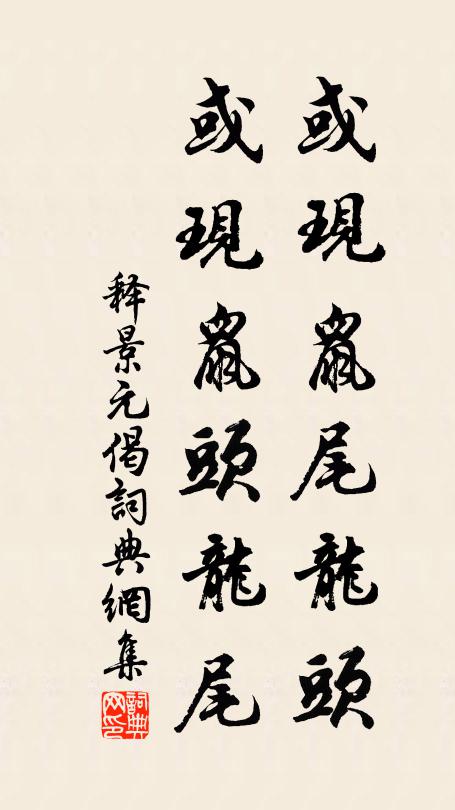 或現鼠尾龍頭
或現鼠頭龍尾
释景元偈詞典網集
詞典网印